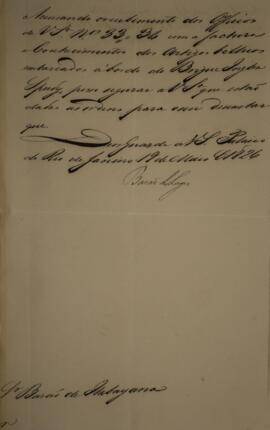 Accusando o recebimento dos Officios
de V. S.ª N.os 33, e 34 com a factura
e Conhecimentos dos Artigos bellicos
embarcados à bordo do Brigue Inglez
posso segurar a V. S.ª que estão
dadas as ordens para esse
que.
Deos Guarde a V. S. Palacio
do Rio de Janeiro 19 de Maio de 1826
Barão de Lages
Sr. Barão de Itabayana